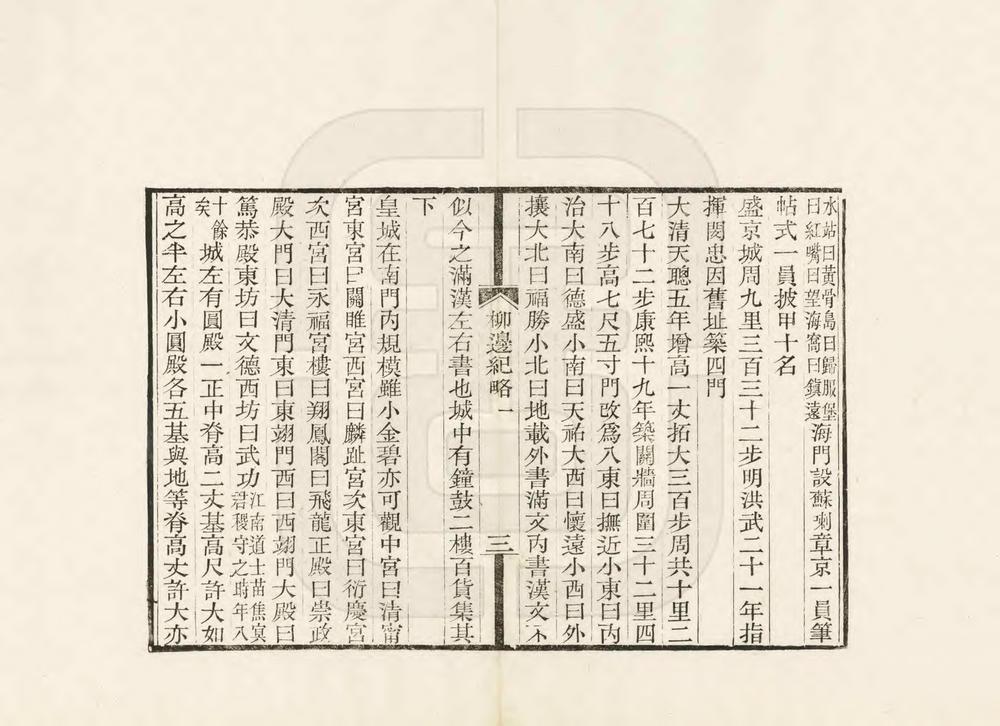 水站曰黃骨島曰歸服堡曰紅嘴曰望海窩曰鎮遠海門設蘇喇章京一員筆
帖式一員披甲十名
盛京城周九里三百三十二步明洪武二十一年指
揮閔忠因舊址築四門
大清天聰五年增高一丈拓大三百步周共十里二
百七十二步康熙十九年築關牆周圍三十二里四
十八步高七尺五寸門改爲八東曰撫近小東曰內
治大南曰德盛小南曰天祐大西曰懷遠小西曰外
攘大北曰福勝小北曰地載外書滿文內書漢文不
柳邊紀略一
三
似今之滿漢左右書也城中有鐘鼓二樓百貨集其
下
皇城在南門內規模雖小金碧亦可觀中宮曰清甯
宮東宮曰關雎宮西宮曰麟趾宮次東宮曰衍慶宮
次西宮曰永福宮樓曰翔鳳閣曰飛龍正殿曰崇政
殿大門曰大清門東曰東翊門西曰西翊門大殿曰
篤恭殿東坊曰文德西坊曰武功江南道士苗焦冥君稷守之時年八
十餘矣城左有圓殿一正中脊高二丈基高尺許大如
高之半左右小圓殿各五基與地等脊高丈許大亦